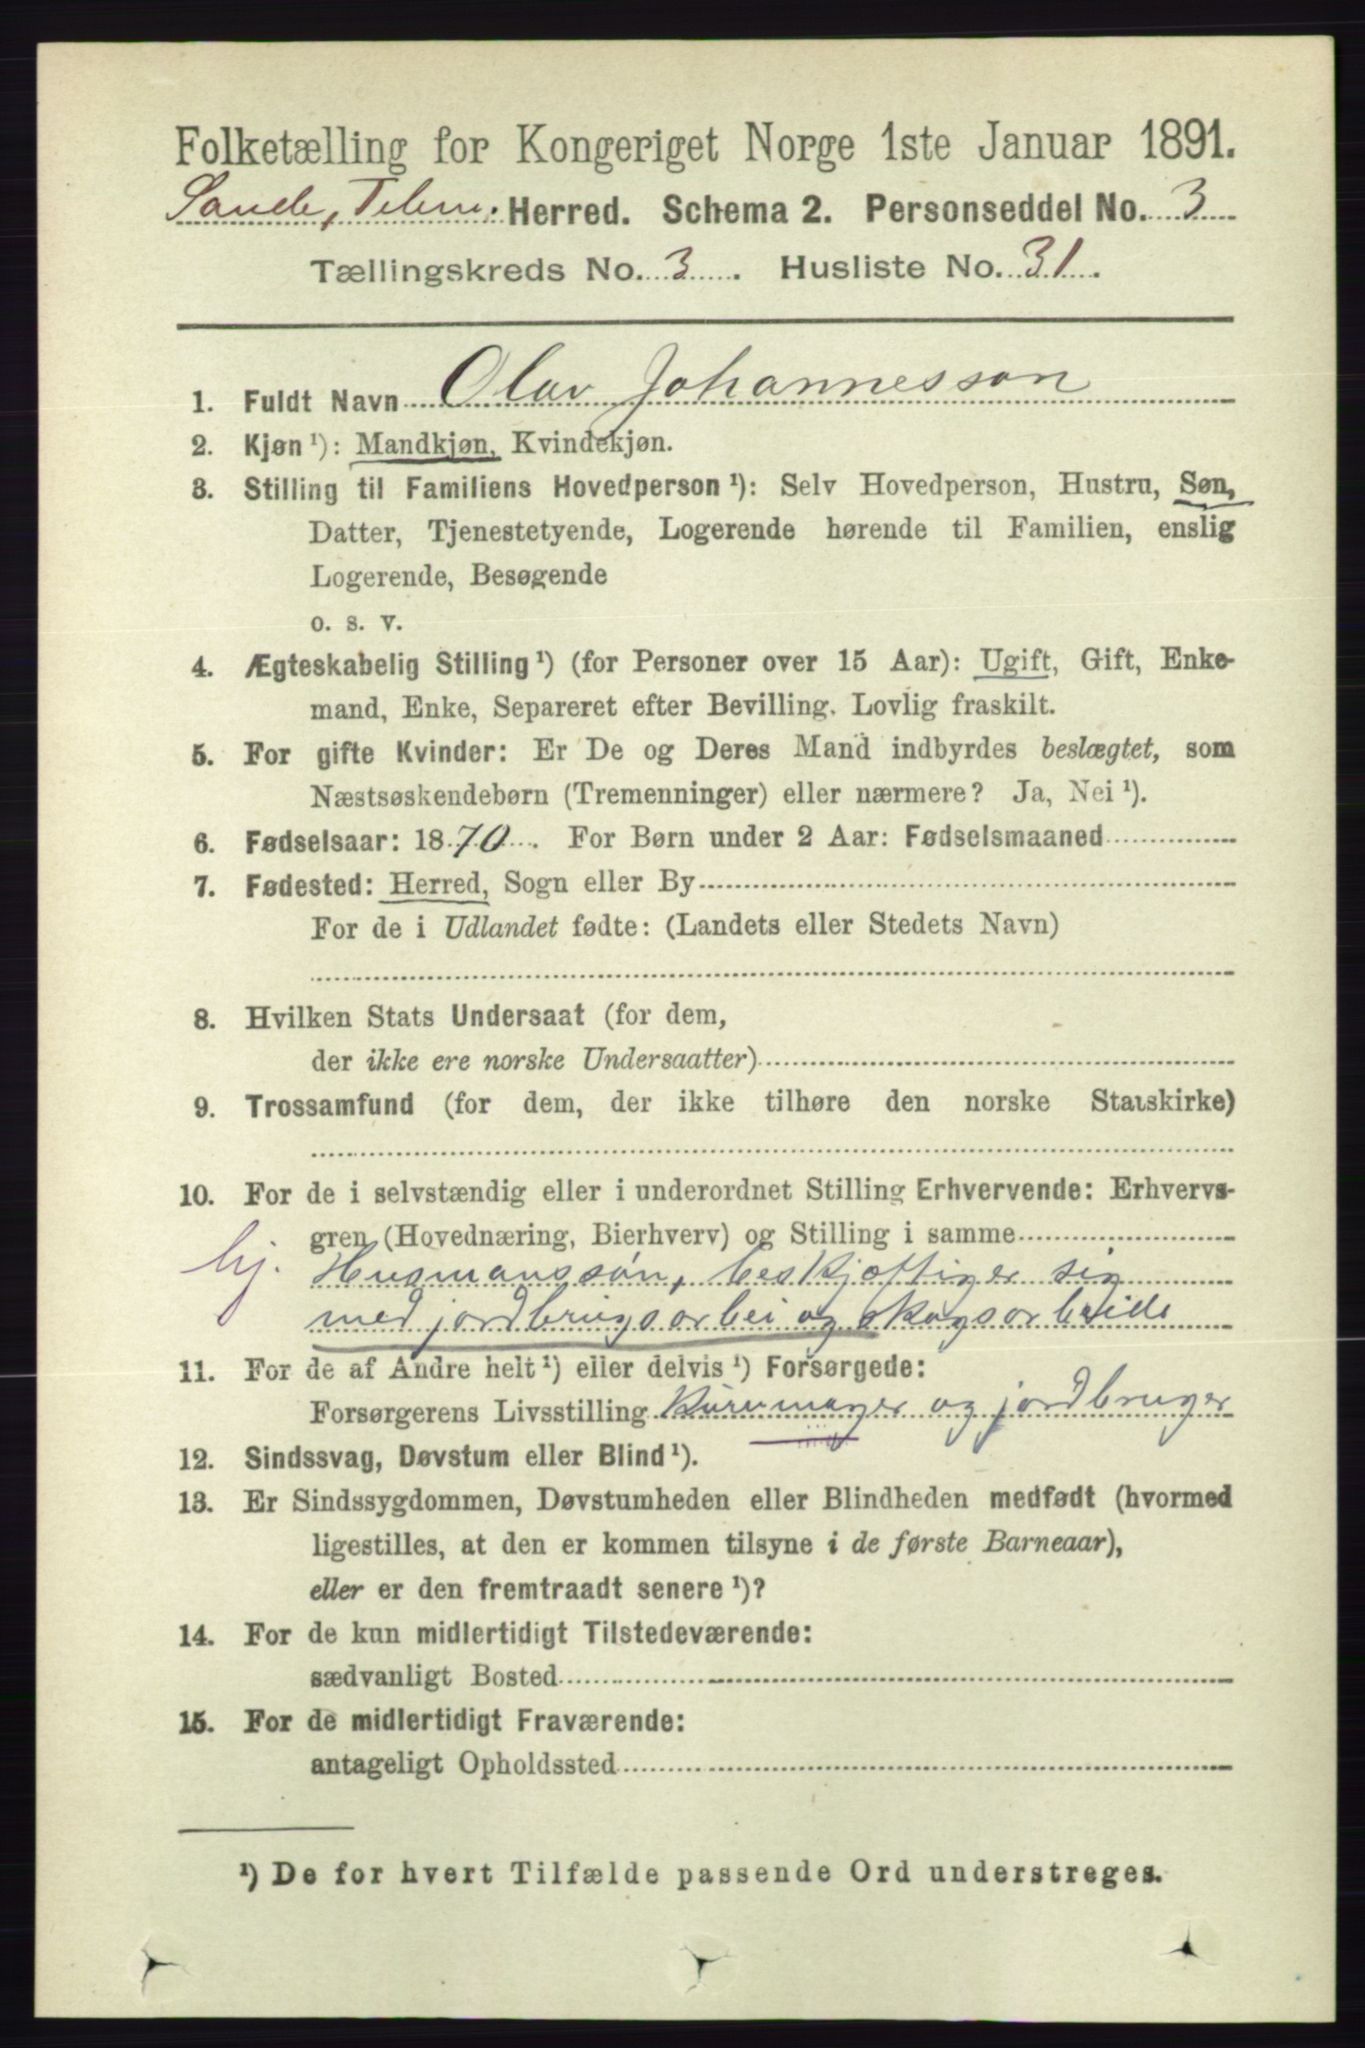 Folketælling for Kongeriget Norge 1ste Januar 1891.
Sande, Telem. Herred. Schema 2. Personseddel No. 3
Tællingskreds No. 3. Husliste No. 31.
1. Fuldt Navn Olav Johannesson
2. Kjøn ¹): Mandkjøn, Kvindekjøn.
3. Stilling til Familiens Hovedperson ¹): Selv Hovedperson, Hustru, Søn,
Datter, Tjenestetyende, Logerende hørende til Familien, enslig
Logerende, Besøgende
o. s. v.
4. Ægteskabelig Stilling ¹) (for Personer over 15 Aar): Ugift, Gift, Enke-
mand, Enke, Separeret efter Bevilling. Lovlig fraskilt.
5. For gifte Kvinder: Er De og Deres Mand indbyrdes beslægtet, som
Næstsøskendebørn (Tremenninger) eller nærmere? Ja, Nei ¹).
6. Fødselsaar: 1870. For Børn under 2 Aar: Fødselsmaaned
7. Fødested: Herred, Sogn eller By
For de i Udlandet fødte: (Landets eller Stedets Navn)
8. Hvilken Stats Undersaat (for dem,
der ikke ere norske Undersaatter)
9. Trossamfund (for dem, der ikke tilhøre den norske Statskirke)
10. For de i selvstændig eller i underordnet Stilling Erhvervende: Erhvervs-
gren (Hovednæring, Bierhverv) og Stilling i samme
hj. Husmanssøn, beskjæftiger sig
med jordbrugsarbei og skogsarbeide
11. For de af Andre helt ¹) eller delvis ¹) Forsørgede:
Forsørgerens Livsstilling og jordbruger
12. Sindssvag, Døvstum eller Blind ¹).
13. Er Sindssygdommen, Døvstumheden eller Blindheden medfødt (hvormed
ligestilles, at den er kommen tilsyne i de første Barneaar),
eller er den fremtraadt senere ¹)?
14. For de kun midlertidigt Tilstedeværende:
sædvanligt Bosted
15. For de midlertidigt Fraværende:
antageligt Opholdssted
¹) De for hvert Tilfælde passende Ord understreges.